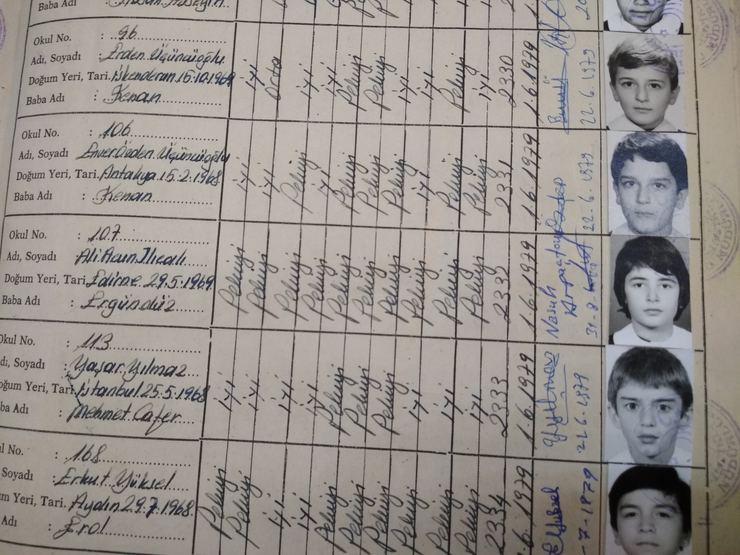 Baba Adı
Okul No. : 96
Adı, Soyadı : Erden Üçüncüoğlu
Doğum Yeri, Tari. İskenderun 15.10.1969
Baba Adı : Kenan
iyi Orta iyi iyi Pekiyi Pekiyi iyi iyi Pekiyi iyi 2330 1.6.1979 22.6.1979
Okul No. : 106
Adı, Soyadı : Enver Özden Üçüncüoğlu
Doğum Yeri, Tari. Antakya 15.2.1968
Baba Adı : Kenan
iyi iyi Pekiyi iyi Pekiyi Pekiyi Pekiyi iyi Pekiyi Pekiyi 2331 1.6.1979 22.6.1979
Okul No. : 107
Adı, Soyadı : Ali Ilıcalı
Doğum Yeri, Tari. Edirne 29.5.1969
Baba Adı : Ergündüz
Pekiyi Pekiyi Pekiyi Pekiyi Pekiyi Pekiyi Pekiyi Pekiyi Pekiyi Pekiyi 2332 1.6.1979
Okul No. : 113
dı, Soyadı : Yaşar Yılmaz
oğum Yeri, Tari. İstanbul 25.5.1968
ba Adı : Mehmet Cafer
iyi iyi iyi iyi Pekiyi Pekiyi Pekiyi iyi iyi iyi 2333 1.6.1979
l No. : 168
Soyadı : Erkut Yüksel
m Yeri, Tari. Aydın 29.7.1968
Adı : Erol
Pekiyi Pekiyi iyi iyi Pekiyi Pekiyi Pekiyi Pekiyi Pekiyi Pekiyi 2334 6.1979 EYüksel -7-1979